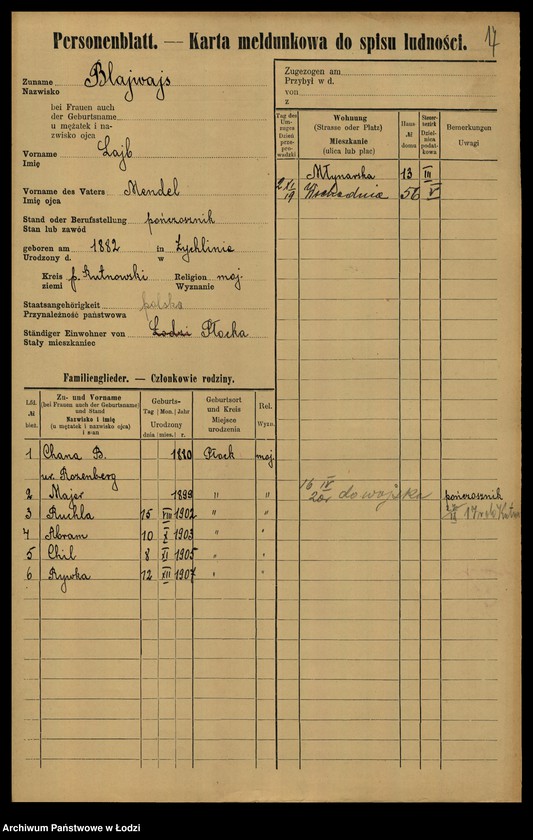 17
Personenblatt. — Karta meldunkowa do spisu ludności.
Zuname
Nazwisko
Blajwajs
bei Frauen auch
der Geburtsname
u mężatek i na-
zwisko ojca
Vorname
Imię
Lajb
Vorname des Vaters
Imię ojca
Mendel
Stand oder Berufsstellung
Stan lub zawód
pończosznik
geboren am 1882 in Żychlinie
Urodzony d. w
Kreis p. Kutnowski Religion moj.
ziemi Wyznanie
Staatsangehörigkeit
Przynależność państwowa
polska
Ständiger Einwohner von
Stały mieszkaniec
Łodzi Płocka
Zugezogen am
Przybył w d.
von
z
Tag des Um-zuges
Dzień prze-prowadzki
Wohnung
(Strasse oder Platz)
Mieszkanie
(ulica lub plac)
Haus
№
domu
Steuer-bezirk
Dzielnica podat-kowa
Bemerkungen
Uwagi
Młynarska 13 III
2 XI 19 Wschodnia 56 V
Familienglieder. — Członkowie rodziny.
Lfd.
№
bież.
Zu- und Vorname
(bei Frauen auch der Geburtsname)
und Stand
Nazwisko i imię
(u mężatek i nazwisko ojca)
i stan
Geburts-
Tag Mon. Jahr
Urodzony
dnia mies. r.
Geburtsort
und Kreis
Miejsce
urodzenia
Rel.
Wyzn.
1 Chana B. 1880 Płock moj.
ur. Rozenberg
2 Majer 1899 " " 16 IV 20r do wojska pończosznik
3 Ruchla 15 VIII 1902 " "
4 Abram 10 X 1903 " "
5 Chil 8 XI 1905 " "
6 Rywka 12 XII 1907 " "
Archiwum Państwowe w Łodzi